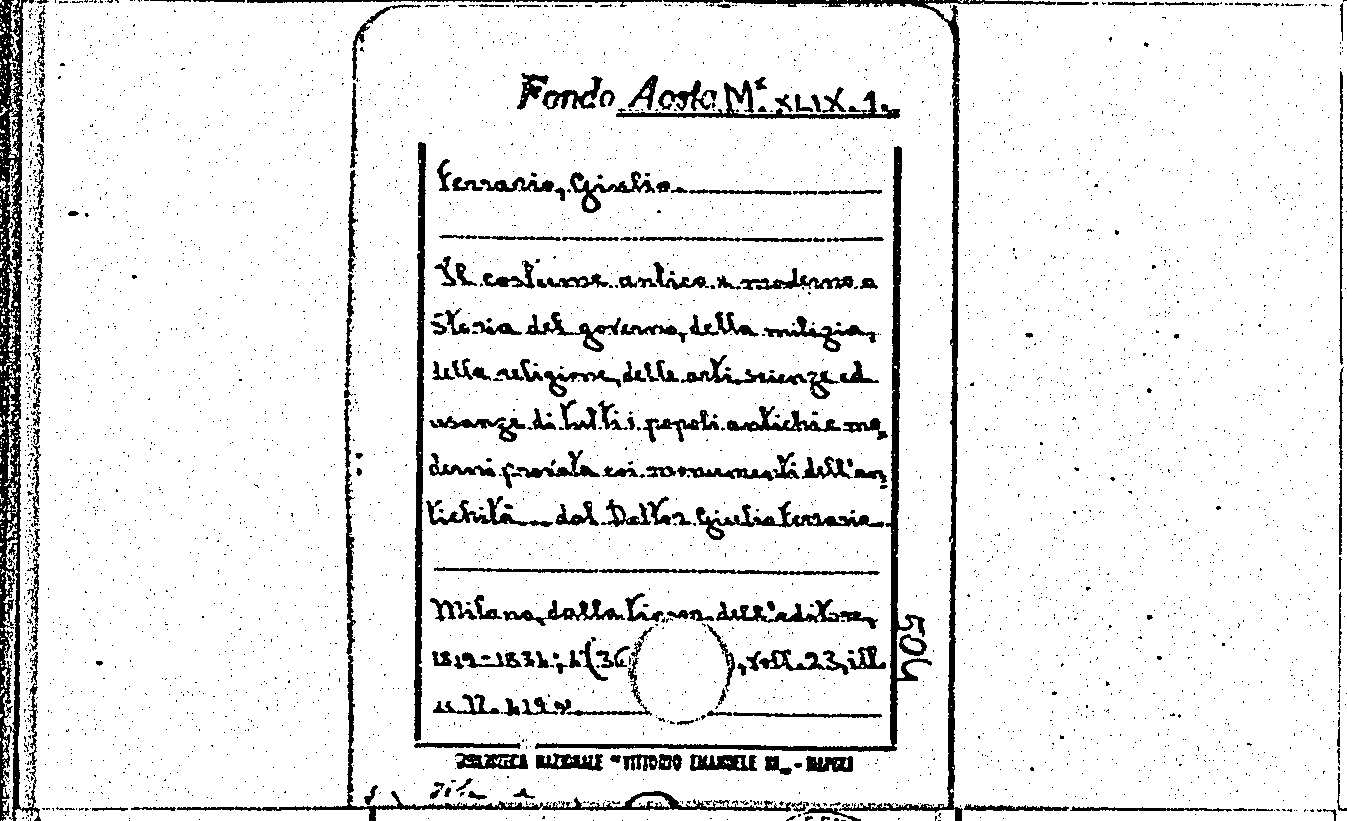 Fondo Aosta Ms. XLIX. 1.
Ferrario, Giulio
Il costume antico e moderno o
Storia del governo, della milizia,
della religione, delle arti, scienze ed
usanze di tutti i popoli antichi e mo-
derni provata coi monumenti dell'an-
tichità dal Dottor Giulio Ferrario
Milano, dalla tipogr. dell'editore,
(36 , voll. 23, ill.
504
BIBLIOTECA NAZIONALE "VITTORIO EMANUELE III" - NAPOLI